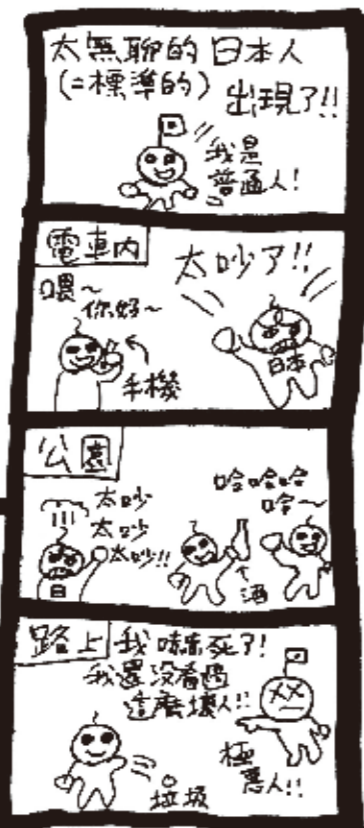 太無聊的日本人
(=標準的) 出現了!!
我是
普通人!
電車内
太吵了!!
喂~
你好~
日本
手機
公園
太吵
太吵
太吵!!
哈哈哈
哈~
日
酒
路上
我嚇死了!
我還沒看過
這麼壞人!!
極
惡人!!
垃圾